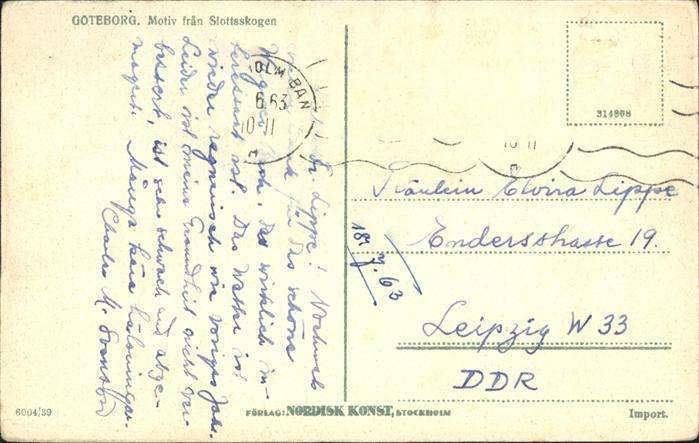 GÖTEBORG. Motiv från Slottsskogen
Frl. Lippe! Nochmals
für das schöne
Das wirklich in-
teressant ist. Das Wetter ist
wieder regnerisch wie voriges Jahr.
Leider ist meine Gesundheit nicht ver-
bessert, ist sehr schwach und abge-
magert. Många kära hälsningar.
Charles M. Svensson
OLM BAN
6.63
10-11
314868
10-11
Fräulein Elvira Lippe
Endersstrasse 19.
18/7.63
Leipzig W 33
DDR
6004/39
FÖRLAG: NORDISK KONST, STOCKHOLM
Import.